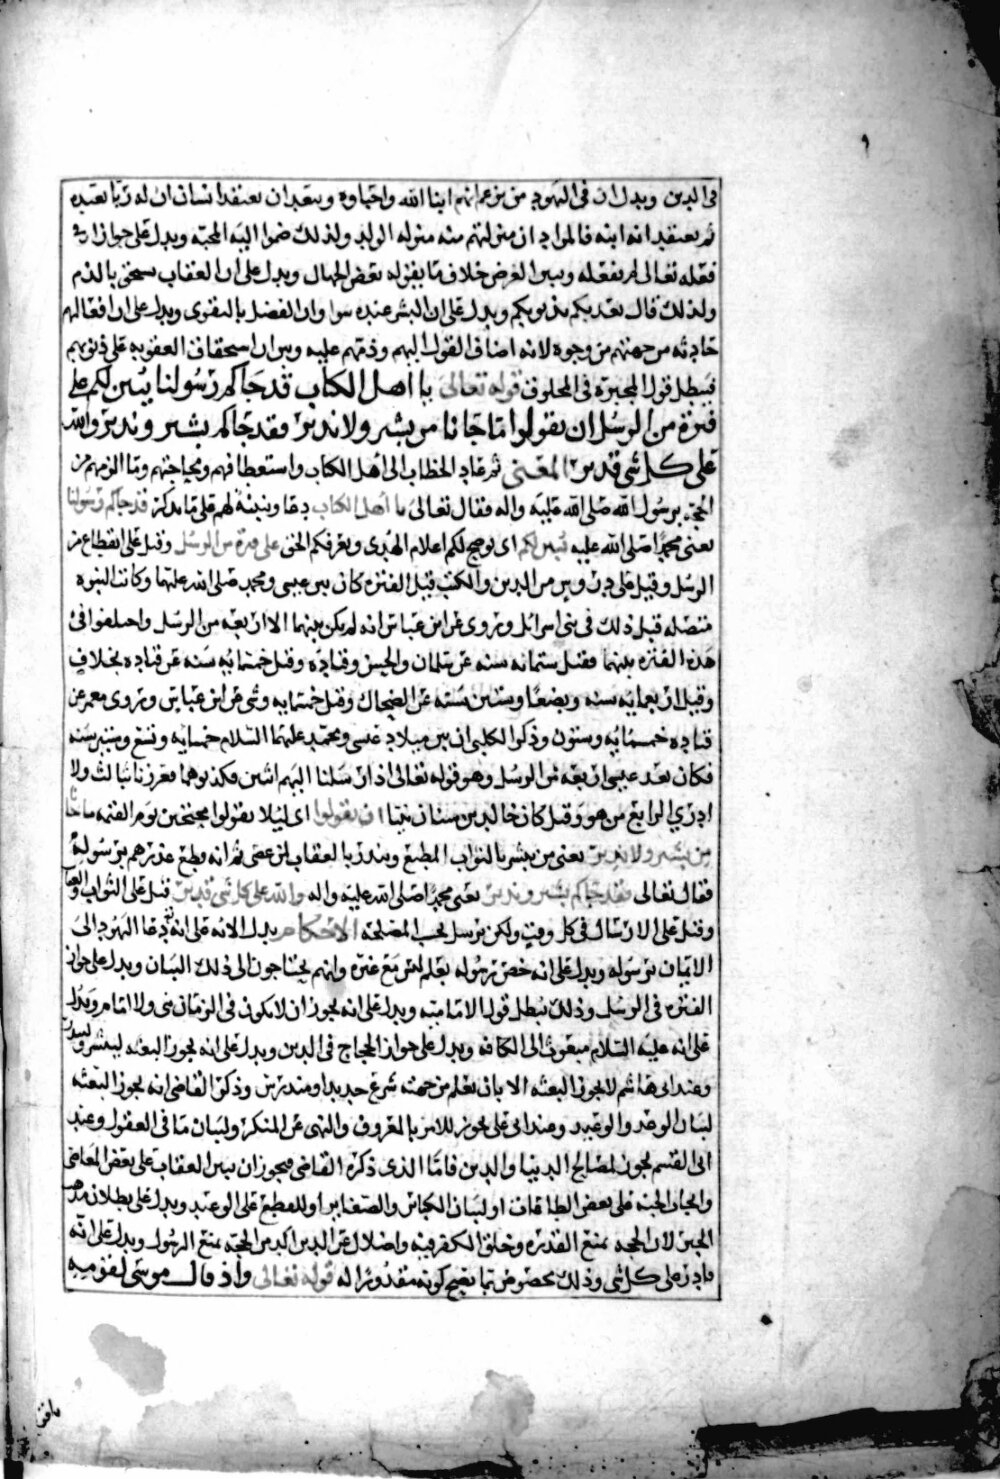 في الدين ويدل ان في اليهود من يزعم انهم ابنا الله واحباوه ويبعد ان يعتقد انسان ان له ربا يعبده
ثم يعتقد انه ابنه فالمراد ان منزلتهم منه منزله الولد ولذلك ضموا اليه المحبه ويدل على جواز ان
فعله تعالى لم يفعله ويبين الغرض خلاف ما يقوله بعض الجهال ويدل على ان العقاب يستحق بالذم
ولذلك قال يعذبكم بذنوبكم ويدل على ان البشر عنده سوا وان الفضل بالتقوى ويدل على ان افعالهم
حادثه من جهتهم من وجوه لانه اضاف القول اليهم وذمهم عليه وبين ان استحقاق العقوبه على ذنوبهم
فبطل قول المجبرة في المخلوق قوله تعالى يا اهل الكتاب قد جاكم رسولنا يبين لكم على
فترة من الرسل ان يقولوا ما جانا من بشير ولا نذير فقد جاكم بشير ونذير والله
على كل شي قدير المعنى ثم عاد الخطاب الى اهل الكتاب واستعطافهم ومحاجتهم وما الزمهم من
الحجه برسول الله صلى الله عليه واله فقال تعالى يا اهل الكتاب دعا وتنبيه لهم على ما يذكر قد جاكم رسولنا
يعني محمدا صلى الله عليه يبين لكم اي يوضح لكم اعلام الهدى ويعرفكم الحق على فترة من الرسل وقيل على انقطاع من
الرسل وقيل على دروس من الدين والكتب قيل الفترة كان بين عيسى ومحمد صلى الله عليهما وكانت النبوه
متصله قبل ذلك في بني اسرائل وروي عن ابن عباس انه لم يكن بينهما الا اربعه من الرسل واختلفوا في
هذه الفتره بينهما فقيل ستمائه سنه عن سلمان والحسن وقتاده وقيل خمسمايه سنه عن قتاده بخلاف
وقيل اربعمايه سنه وبضعا وستين سنه عن الضحاك وقيل خمسمايه وشي عن ابن عباس وروى معمر عن
قتاده خمسمايه وستون وذكر الكلبي ان بين ميلاد عيسى ومحمد عليهما السلام خمسمايه وتسع وستين سنه
فكان بعد عيسى اربعه من الرسل وهو قوله تعالى اذ ارسلنا اليهم اثنين فكذبوهما فعززنا بثالث ولا
ادري الرابع من هو وقيل كان خالد بن سنان نبيا ان يقولوا اي ليلا يقولوا محتجين يوم القيمه ما جانا
من بشير ولا نذير يعني من يبشر بالثواب المطيع وينذر بالعقاب لمن عصى ثم انه قطع عذرهم برسوله
فقال تعالى فقد جاكم بشير ونذير يعني محمدا صلى الله عليه واله والله على كل شي قدير قيل على الثواب والعقاب
وقيل على الارسال في كل وقت ولكن يرسل بحسب المصلحه الاحكام يدل الايه على انه دعا اليهود الى
الايمان برسوله ويدل على انه خص برسوله بعلم ليس مع غيره وانهم يحتاجون الى ذلك البيان ويدل على جواز
الفتره في الرسل وذلك يبطل قول الاماميه ويدل على انه يجوز ان لا يكون في الزمان نبي ولا امام ويدل
على انه عليه السلام مبعوث الى الكافه ويدل على جواز الحجاج في الدين ويدل على انه يجوز البعثه ليبشر ولينذر
وعند ابي هاشم لا يجوز البعثه الا بان يعلم من جهته شرع جديد او مندرس وذكر القاضي انه يجوز البعثه
لبيان الوعد والوعيد وعند ابي علي يجوز للامر بالمعروف والنهي عن المنكر ولبيان ما في العقول وعند
ابي القسم يجوز لمصالح الدنيا والدين فاما الذي ذكره القاضي فيجوز ان يبين العقاب على بعض المعاصي
وايجاب الجنه على بعض الطاعات او لبيان الكبائر والصغاير او للقطع على الوعيد ويدل على بطلان مذهب
الجبر لان الحجه بمنع القدره وخلق الكفر فيه واضلال عن الدين اكبر من الحجه بمنع الرسول ويدل على انه
قادر على كل شي وذلك مخصوص بما يصح كونه مقدورا له قوله تعالى واذ قال موسى لقومه